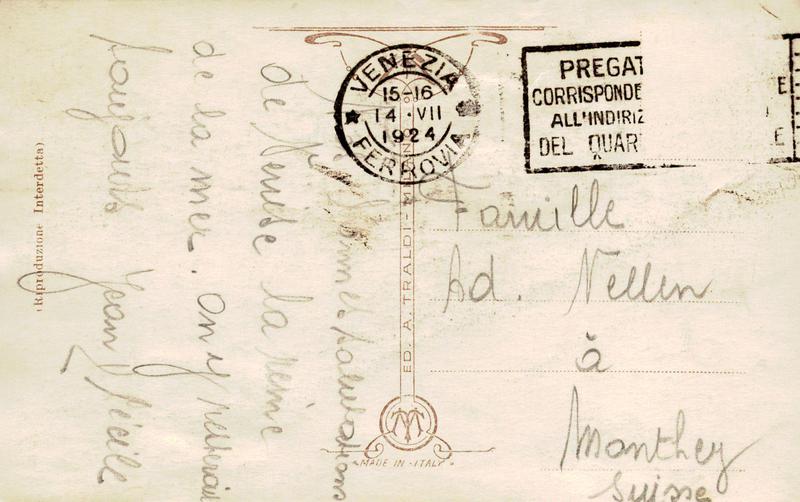 VENEZIA
15-16
14 · VII
1924
FERROVIA
PREGAT
CORRISPONDE
ALL'INDIRIZ
DEL QUAR
E
E
salutations
de Venise la reine
de la mer. On y resterait
toujours Jean Cécile
Famille
Ad. Nellen
à
Monthey
Suisse
ED. A. TRALDI - M
MADE IN ITALY
(Riproduzione Interdetta)